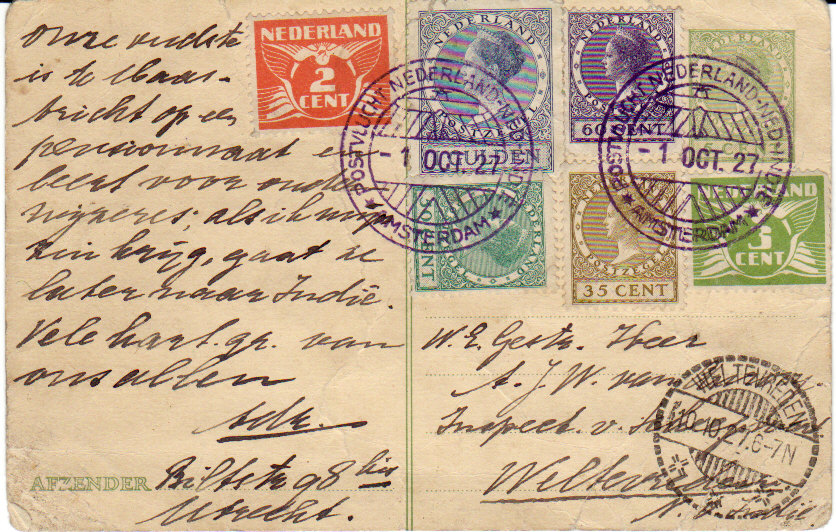 onze oudste
is te Maas-
tricht op een
pensionnaat en
leert voor onder
wijzeres; als ik mijn
zin krijg, gaat ze
later naar Indië.
Vele hart. gr. van
ons allen
AFZENDER Biltstr 98 bis
Utrecht.
NEDERLAND
2
CENT
NEDERLAND
GULDEN
NEDERLAND
POSTZEGEL
60 CENT
NEDERLAND
POSTVLUCHT NEDERLAND-NED-INDIE
- 1 OCT. 27
AMSTERDAM
POSTVLUCHT NEDERLAND-NED-INDIE
- 1 OCT. 27
AMSTERDAM
NEDERLAND
CENT
POSTZEGEL
35 CENT
NEDERLAND
3
CENT
W. E. Gestr. Heer
A. J. W. van
Inspect. v.
Weltevreden
N. O. Indië
WELTEVREDEN
10.10.27.6-7N